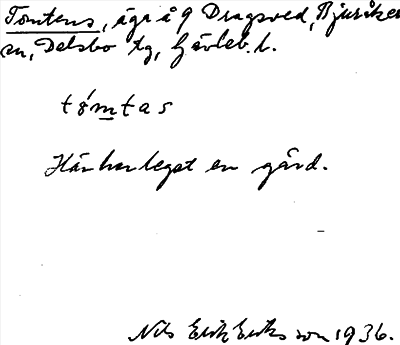 Tomtens, äga å 9 Dragsved, Bjuråker
sn, Delsbo tg, Gävleb. l.
tómtas
Här har legat en gård.
Nils Erik Eriksson 1936.